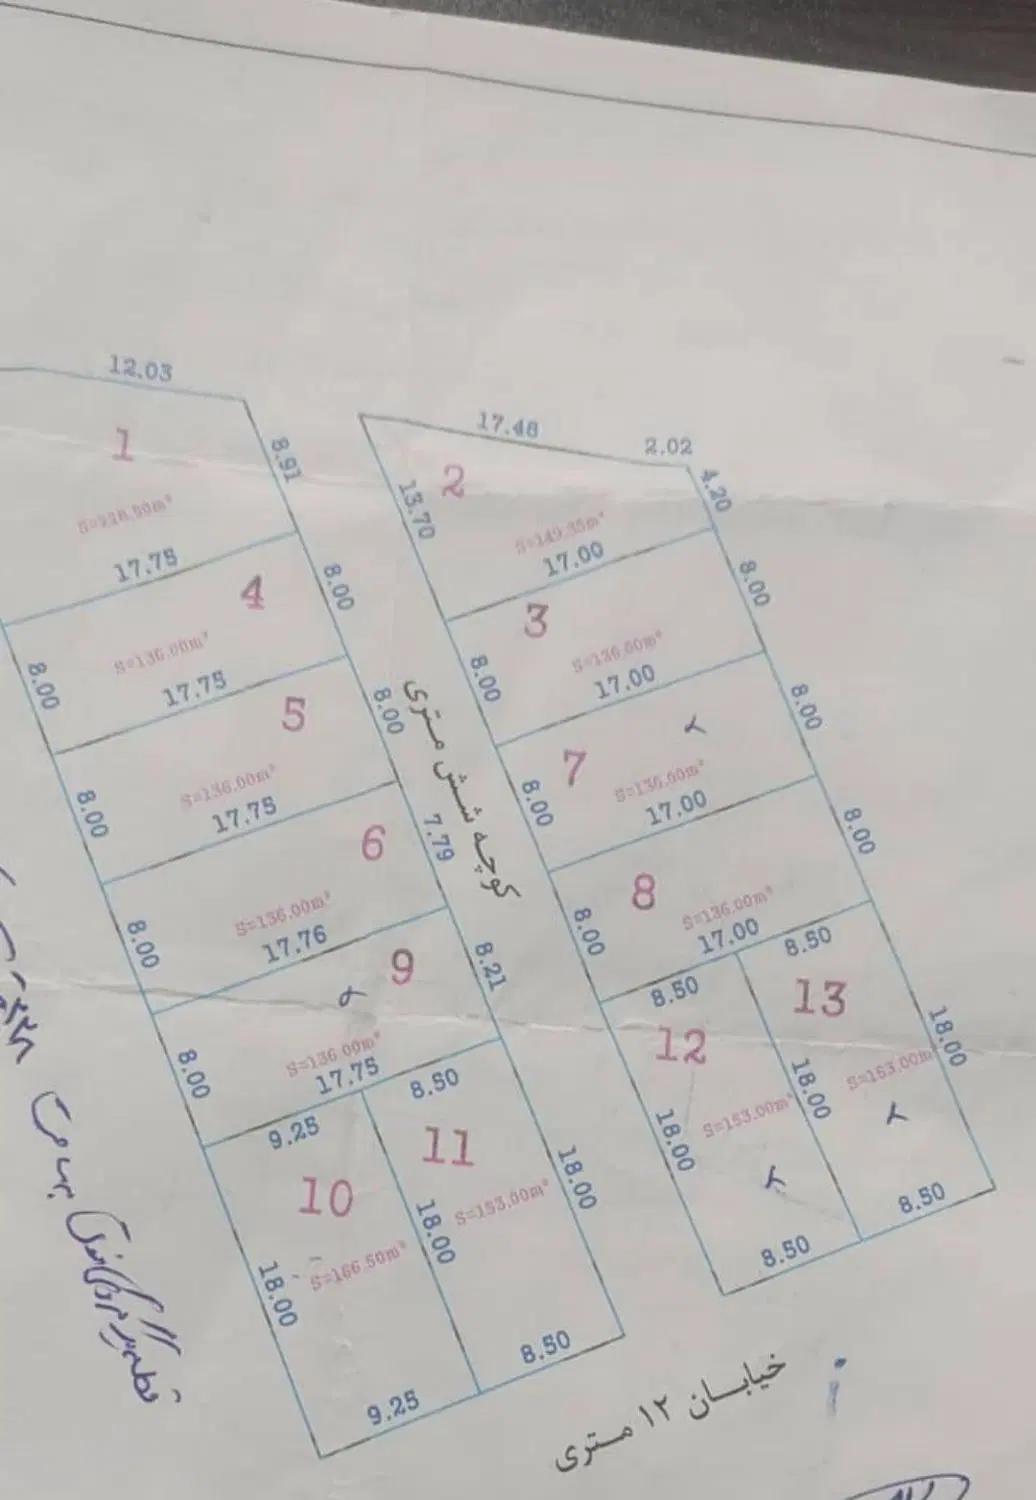 12.03
1
8.91
S=228.50m²
17.75
17.48
2.02
2
4.20
13.70
S=149.35m²
17.00
4
8.00
8.00
S=136.00m²
17.75
3
8.00
8.00
S=136.00m²
17.00
5
8.00
8.00
S=136.00m²
17.75
7
8.00
8.00
S=136.00m²
17.00
6
7.79
8.00
S=136.00m²
17.76
8
8.00
8.00
S=136.00m²
17.00
کوچه شش متری
9
8.21
8.00
S=136.00m²
17.75
8.50
8.50
12
13
18.00
18.00
18.00
S=153.00m²
S=153.00m²
8.50
8.50
9.25
8.50
10
11
18.00
18.00
18.00
S=166.50m²
S=153.00m²
9.25
8.50
خیابان ۱۲ متری